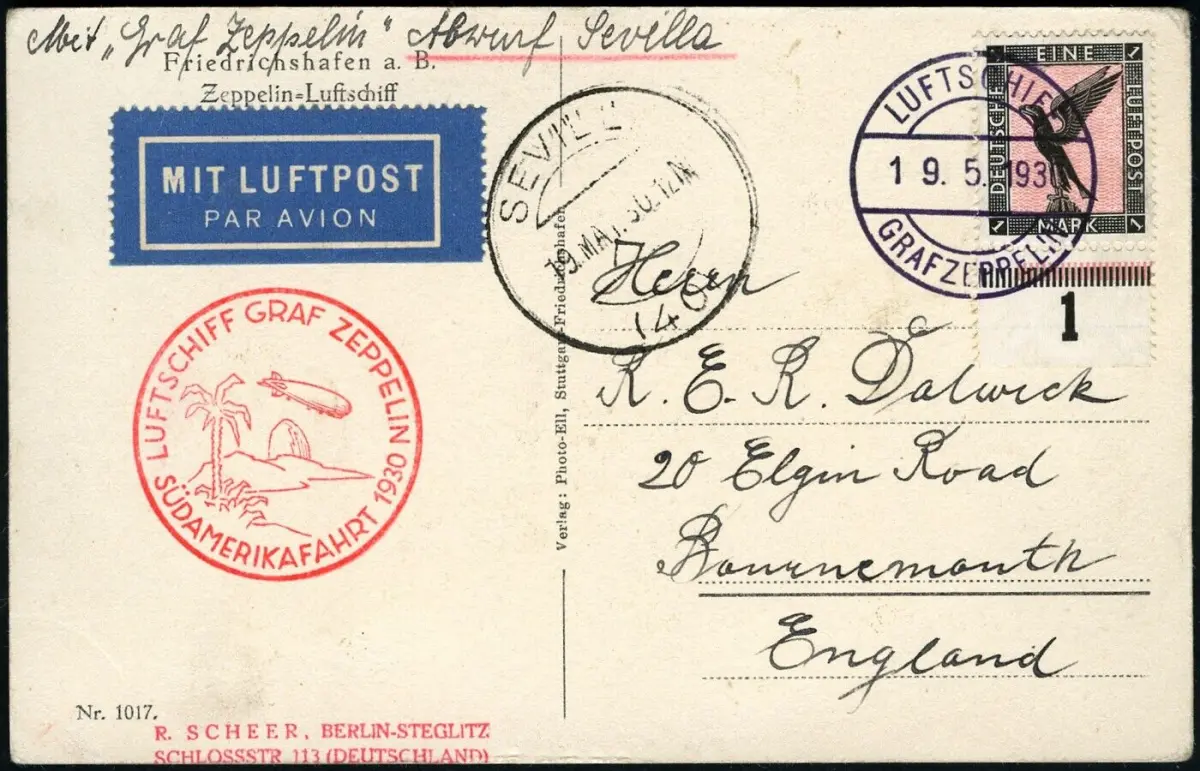 Mit „Graf Zeppelin" Abwurf Sevilla
Friedrichshafen a. B.
Zeppelin=Luftschiff
MIT LUFTPOST
PAR AVION
SEVILL
19.MAY.30.12N
140
LUFTSCHIFF
19.5.1930
GRAF ZEPPELIN
EINE
DEUTSCHE
LUFTPOST
1 MARK 1
1
LUFTSCHIFF GRAF ZEPPELIN
SÜDAMERIKAFAHRT 1930
Verlag: Photo-Ell, Stuttgart-Friedrichshafen
Herrn
R. E. R. Dalwick
20 Elgin Road
Bournemouth
England
Nr. 1017.
R. SCHEER, BERLIN-STEGLITZ
SCHLOSSSTR 113 (DEUTSCHLAND)